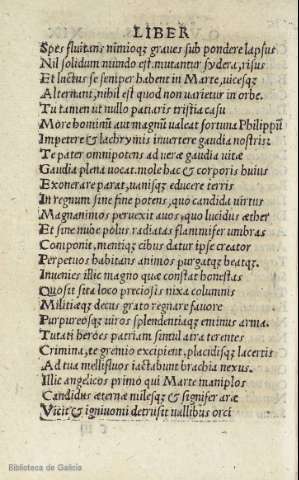 LIBER
Spes fluitans nimioq; graues sub pondere lapsus
Nil solidum mundo est. mutantur sydera, risus
Et luctus se semper habent in Marte, uicesq;
Alternant, nihil est quod non uarietur in orbe.
Tu tamen ut nullo patiaris tristia casu
More hominū aut magnū ualeat fortuna Philippū
Impetere & lachrymis inuertere gaudia nostris:
Te pater omnipotens ad ueræ gaudia uitæ
Gaudia plena uocat. mole hac & corporis huius
Exonerare parat, uanisq; educere terris
In regnum sine fine potens, quo candida uirtus
Magnanimos peruexit auos, quo lucidus æther
Et sine nube polus radiatas flammifer umbras
Componit, mentiq; cibus datur ipse creator
Perpetuos habitans animos purgatq; beatq;.
Inuenies illic magno quæ constat honestas
Quo sit sita loco preciosis nixa columnis
Militiæq; decus grato regnare fauore
Purpureosq; uiros splendentiaq; eminus arma.
Tutati heroes patriam simul aira terentes
Crimina, te gremio excipient, placidisq; lacertis
Ad tua mellifluos iactabunt brachia nexus.
Illic angelicos primo qui Marte maniplos
Candidus æternæ milesq; & signifer aræ
Vicit & igniuomi detrusit uallibus orci
Biblioteca de Galicia